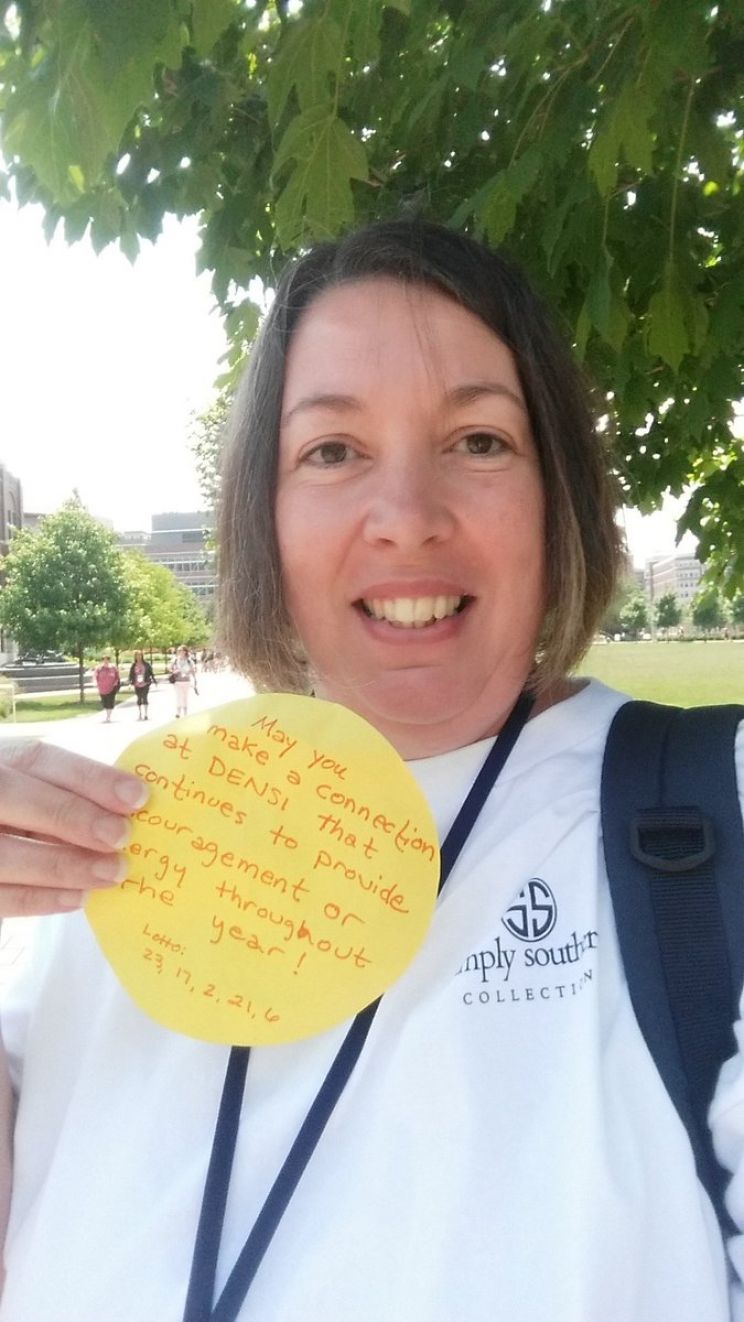 May you
make a connection
at DENSI that
continues to provide
couragement or
ergy throughout
the year!
Lotto:
23, 17, 2, 21, 6
SS
mply southern
COLLECTION